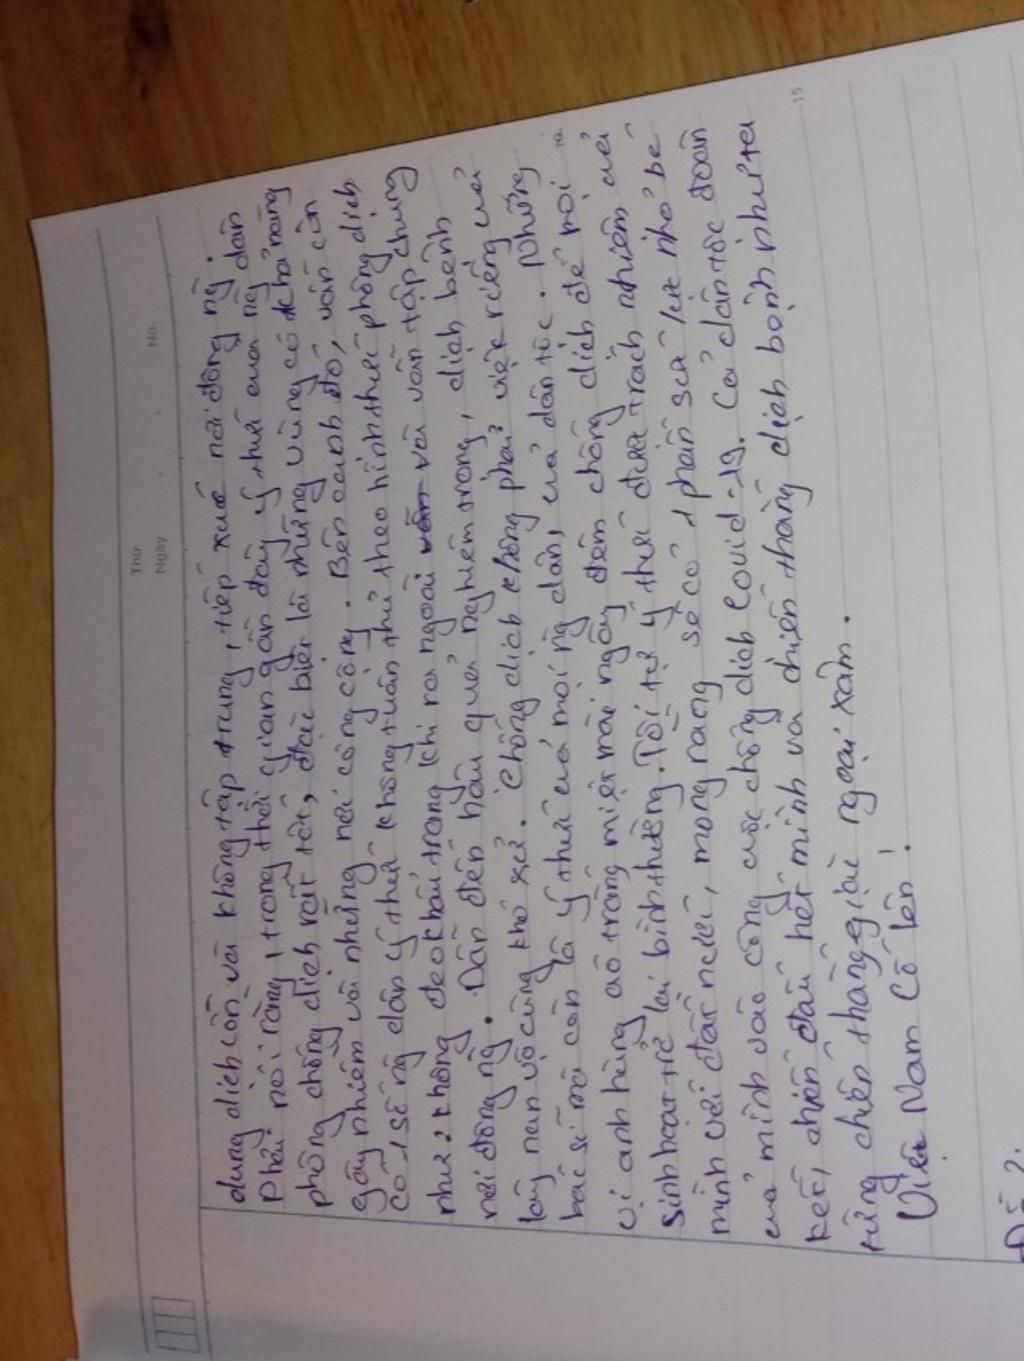 Thứ
Ngày
No.
dung dịch cồn và không tập trung, tiếp xúc nơi đông ng.
Phải nói rằng, trong thời gian gần đây ý thức của ng dân
phòng chống dịch rất tốt, đặc biệt là những vùng có khả năng
gây nhiễm với những nơi công cộng. Bên cạnh đó, vẫn còn
có 1 số ng dân ý thức không tuân thủ theo hình thức phòng dịch
như: không đeo khẩu trang khi ra ngoài và vẫn tập chung
nơi đông ng. Dẫn đến hậu quả nghiêm trọng, dịch bệnh
lây nan vô cùng khó xử. Chống dịch không phải việc riêng của
bác sĩ mà còn là ý thức của mọi ng dân, của dân tộc. Những
vị anh hùng áo trắng miệt mài ngày đêm chống dịch để mọi
sinh hoạt trở lại bình thường. Tôi tự ý thức được trách nhiệm của
mình với đất nước, mong rằng sẽ có 1 phần sức lực nhỏ bé
của mình vào công cuộc chống dịch Covid-19. Cả dân tộc đoàn
kết, chiến đấu hết mình và chiến thắng dịch bệnh như ta
từng chiến thắng giặc ngoại xâm.
Việt Nam Cố lên!
15
Đề 2: